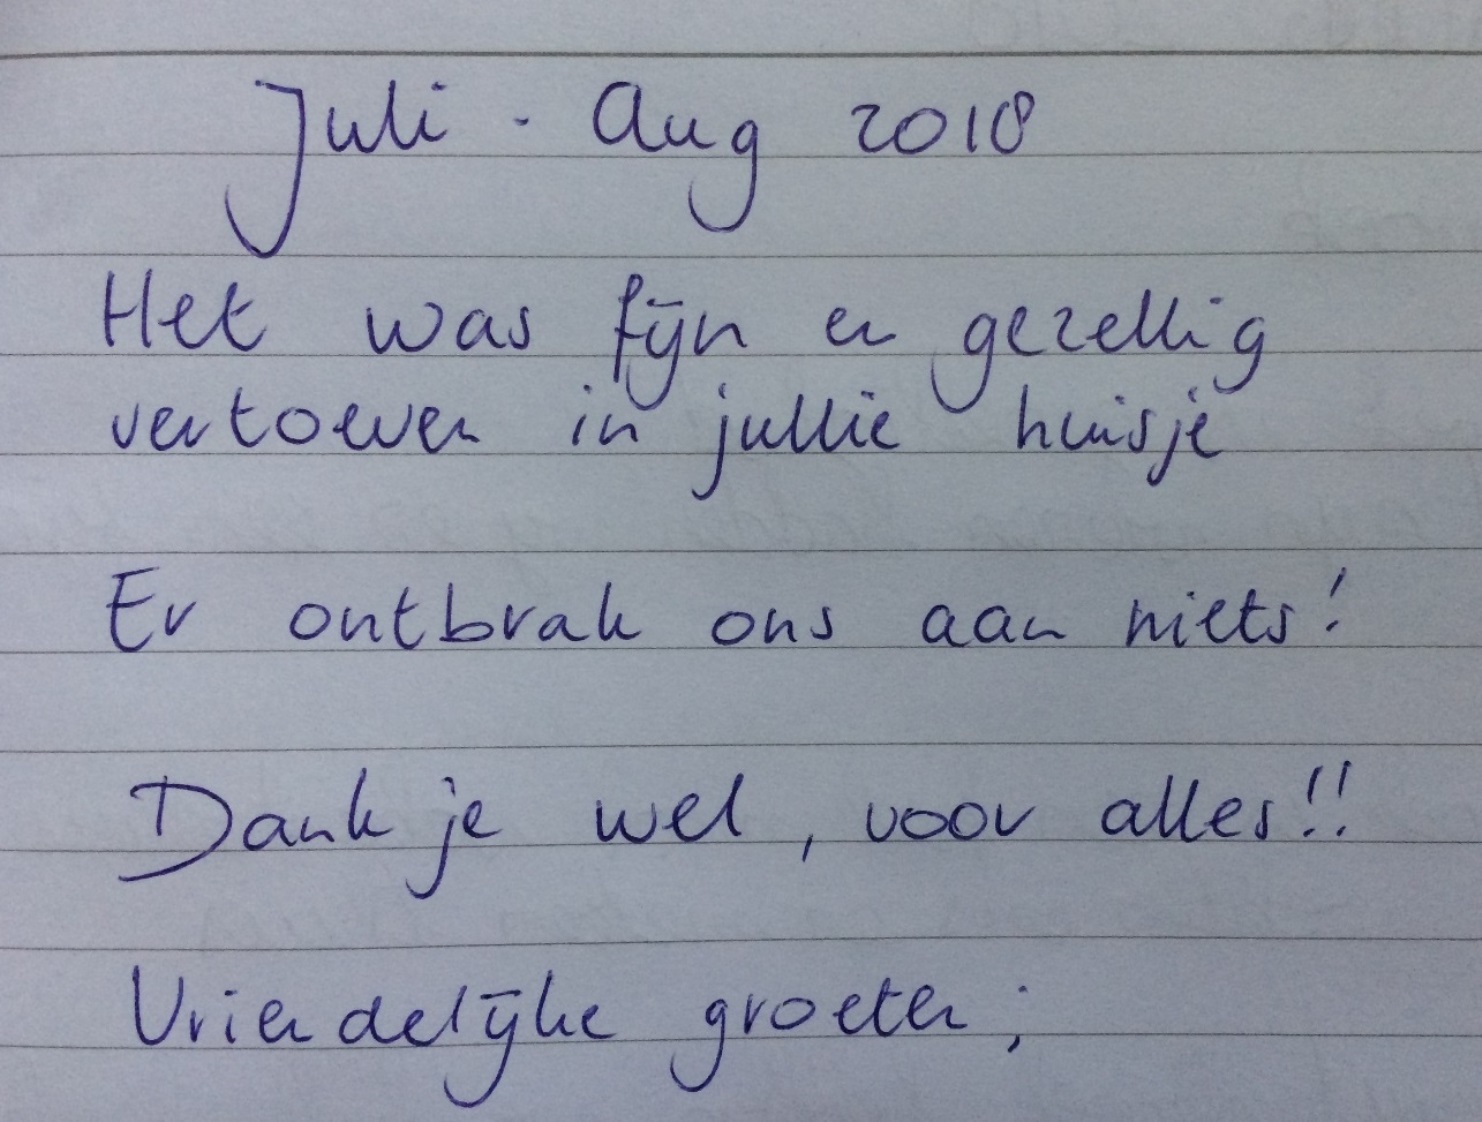 Juli - Aug 2018
Het was fijn en gezellig
vertoeven in jullie huisje
Er ontbrak ons aan niets!
Dank je wel, voor alles!!
Vriendelijke groeten;